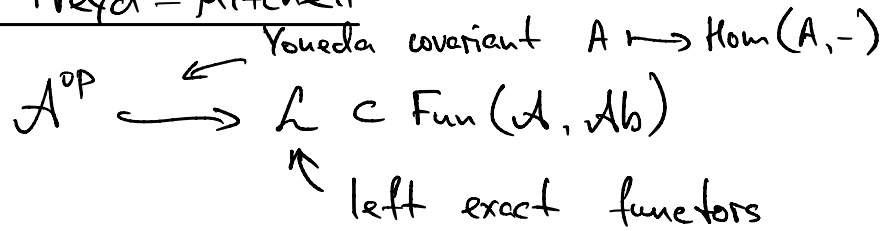 Freyd – Mitchell
Yoneda covariant A ↦ Hom(A, -)
𝒜^op ↪ ℒ ⊂ Fun(𝒜, Ab)
left exact functors